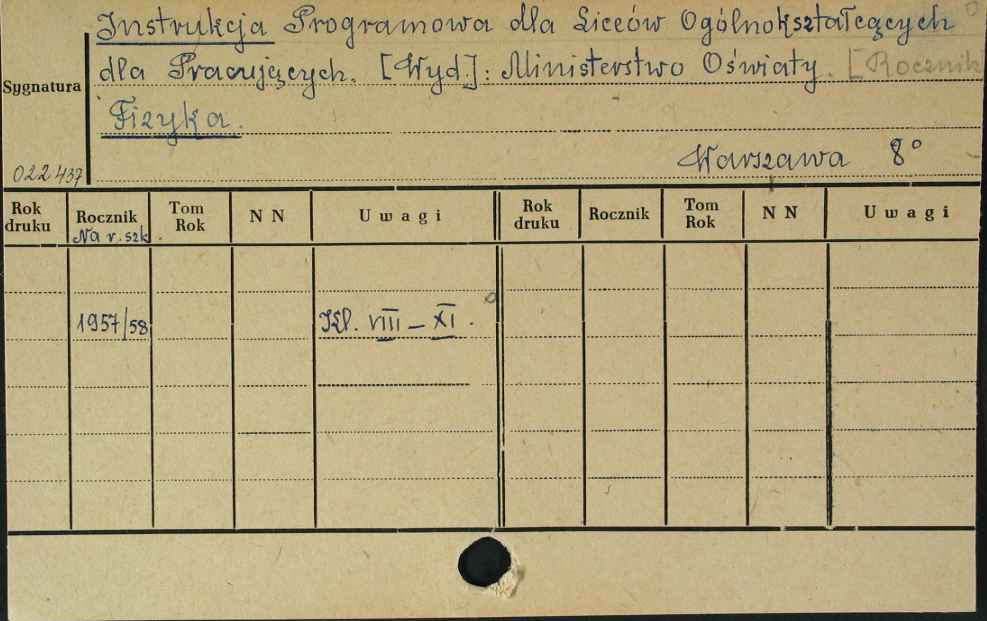 Instrukcja Programowa dla Liceów Ogólnokształcących
dla Pracujących. [Wyd.]: Ministerstwo Oświaty. [Rocznik]
Sygnatura
Fizyka.
Warszawa 8°
022437
Rok druku Rocznik Na r. szk. Tom Rok N N Uwagi Rok druku Rocznik Tom Rok N N Uwagi
1957/58 Kl. VIII – XI.